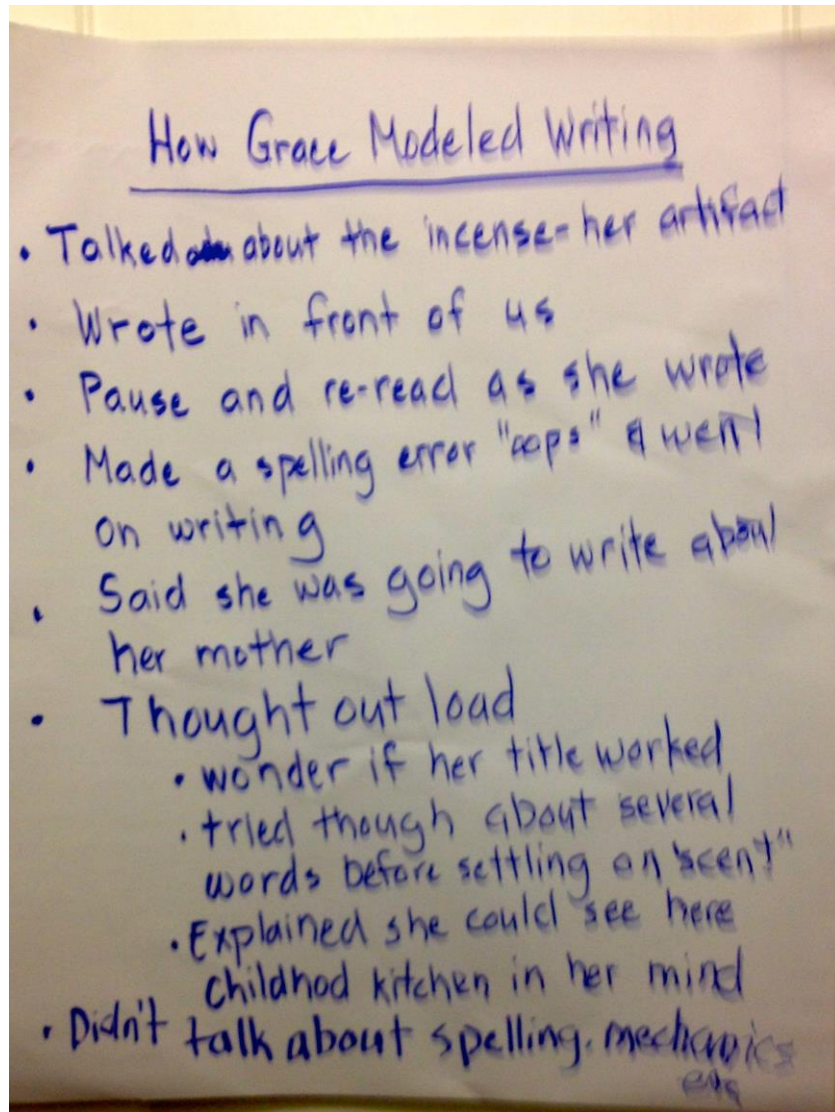 How Grace Modeled Writing
• Talked about the incense- her artifact
• Wrote in front of us
• Pause and re-read as she wrote
• Made a spelling error "oops" & went
on writing
• Said she was going to write about
her mother
• Thought out load
• wonder if her title worked
• tried though about several
words before settling on "scent"
• Explained she could see here
childhod kitchen in her mind
• Didn't talk about spelling, mechanics
etc